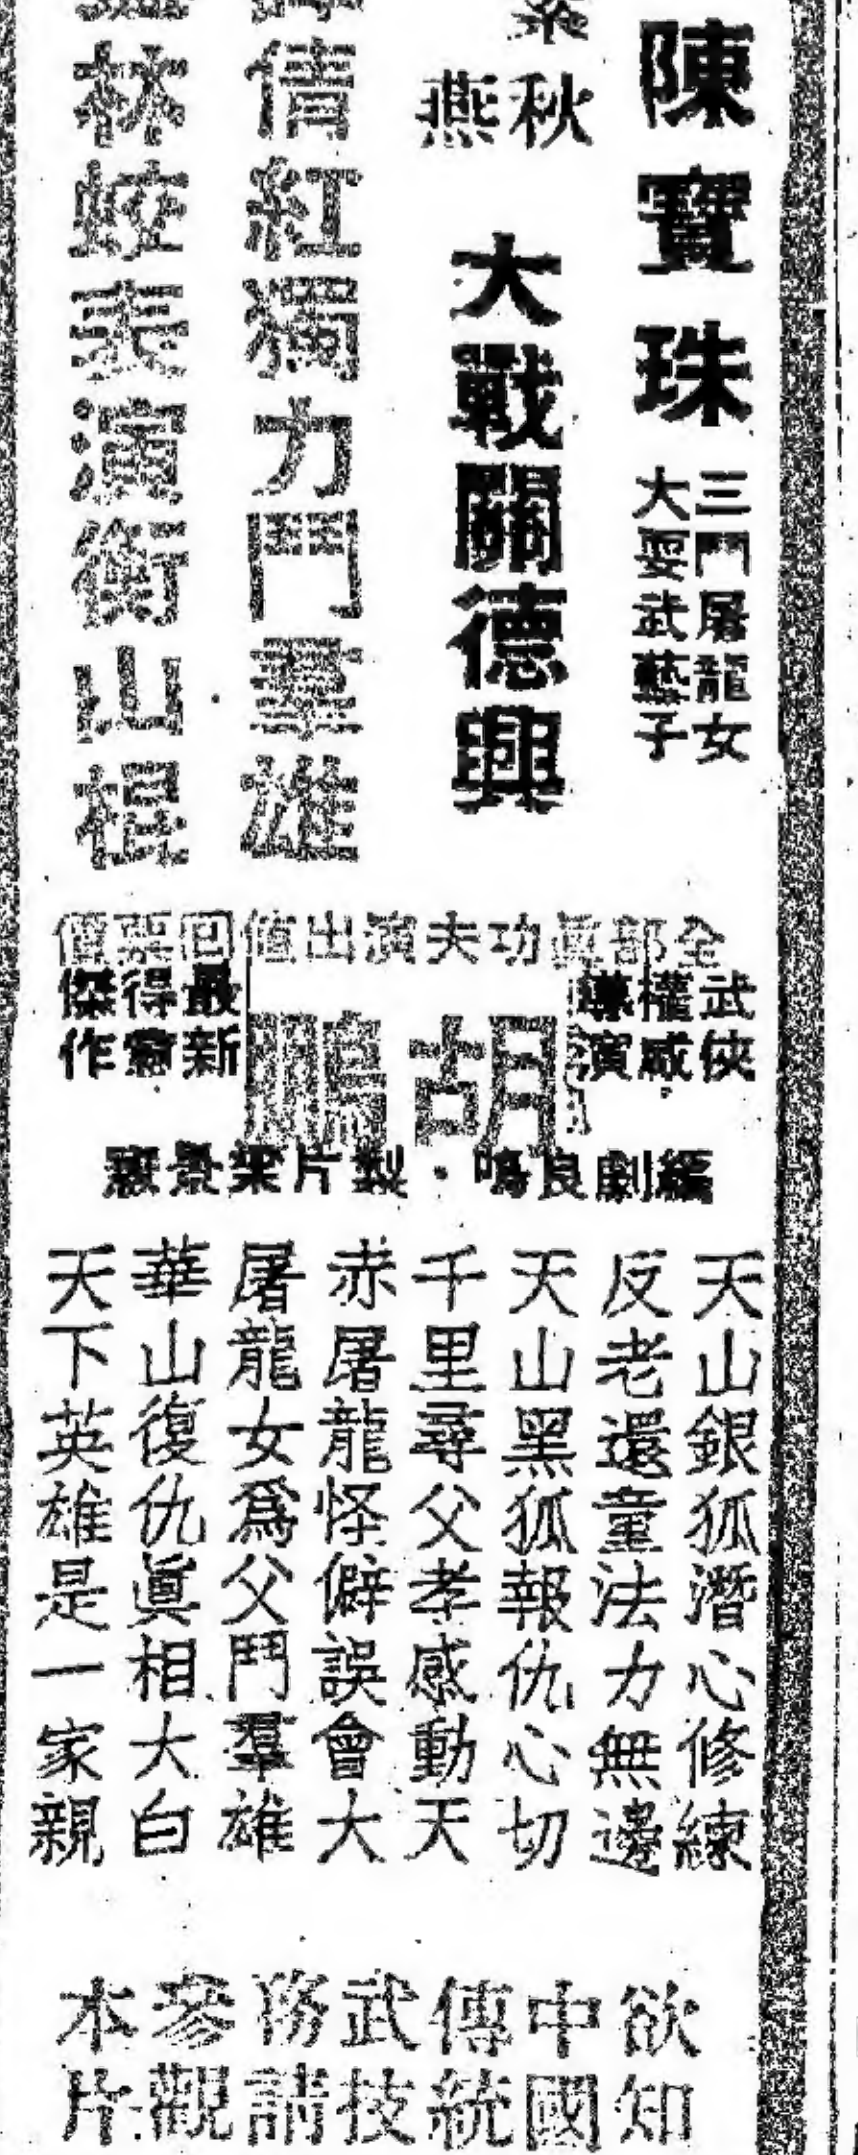 陳寶珠
三鬥屠龍女
大耍武藝子
秋
燕
大戰關德興
信紅獨力鬥羣雄
林蛟表演衡山棍
全部眞功夫演出值回票價
武俠
權威
導演
胡鵬
最新
得意
傑作
編劇良鳴·製片梁景
天山銀狐潛心修練
反老還童法力無邊
天山黑狐報仇心切
千里尋父孝感動天
赤屠龍怪僻誤會大
屠龍女爲父鬥羣雄
華山復仇眞相大白
天下英雄是一家親
欲知
中國
傳統
武技
務請
參觀
本片